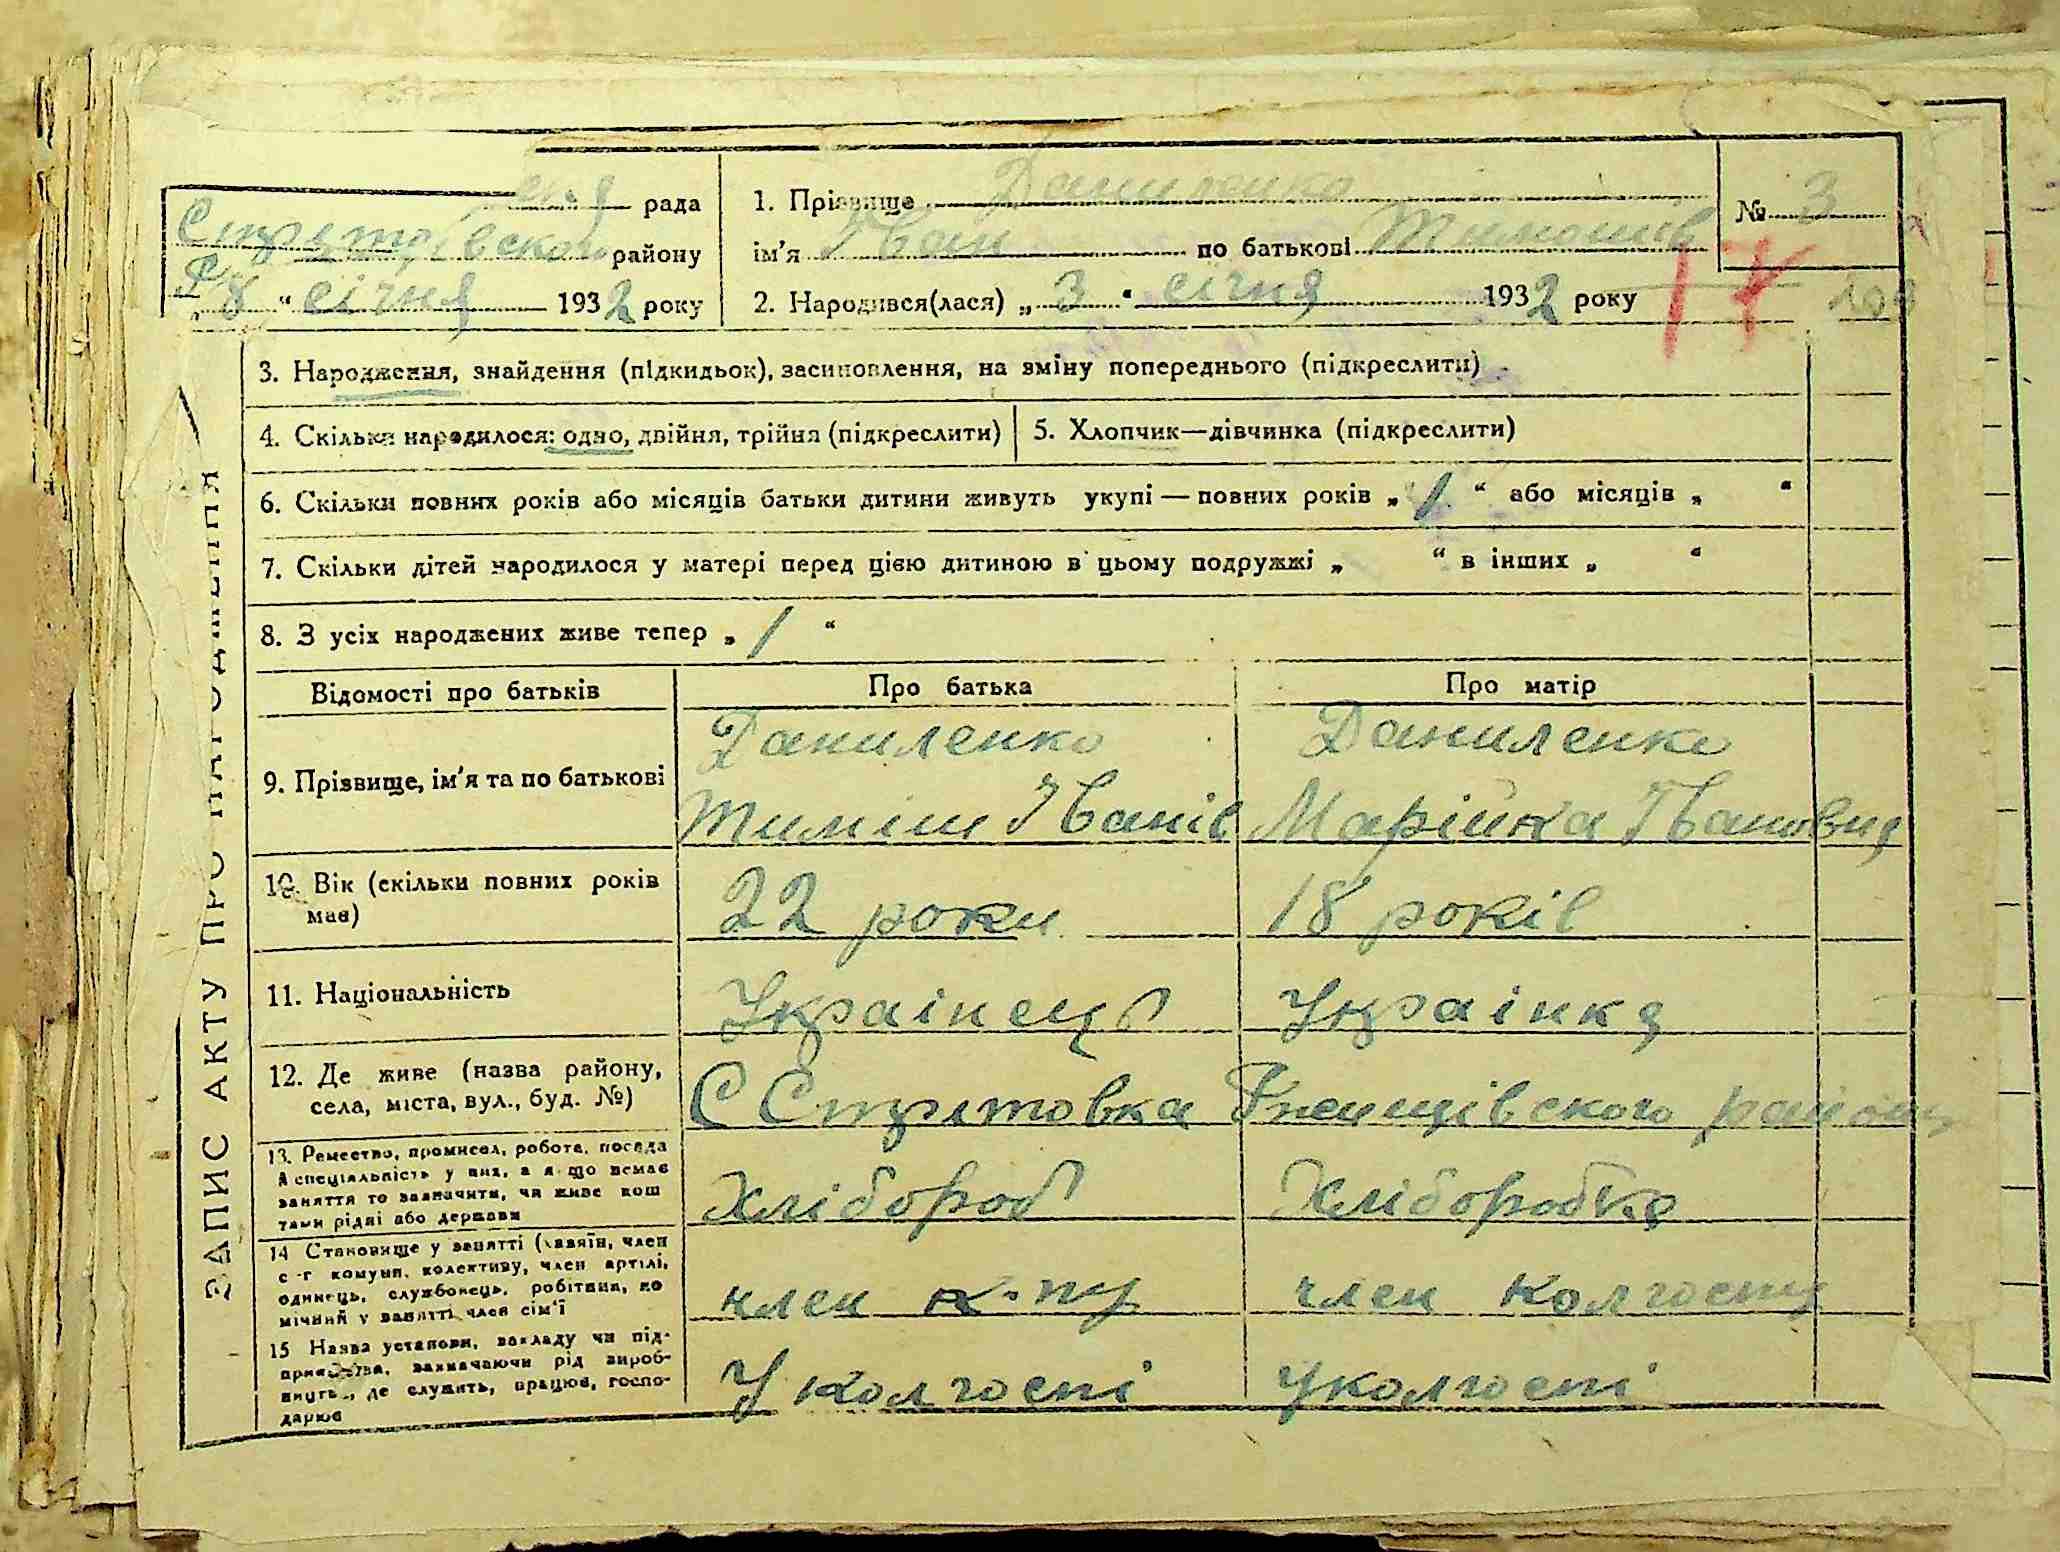 рада
району
8 " січня 1932 року
1. Прізвище Даниленко
ім'я Іван по батькові Тимошів
2. Народився(лася) „ 3 " січня 1932 року
№ 3
17
193
ЗАПИС АКТУ ПРО НАРОДЖЕННЯ
3. Народження, знайдення (підкидьок), засиновлення, на зміну попереднього (підкреслити)
4. Скільки народилося: одно, двійня, трійня (підкреслити) 5. Хлопчик—дівчинка (підкреслити)
6. Скільки повних років або місяців батьки дитини живуть укупі — повних років „ 1 “ або місяців „ “
7. Скільки дітей народилося у матері перед цією дитиною в цьому подружжі „ “ в інших „ “
8. З усіх народжених живе тепер „ 1 “
Відомості про батьків Про батька Про матір
9. Прізвище, ім'я та по батькові
Даниленко Даниленко
Тиміш Іванів Марійка Івановна
10. Вік (скільки повних років має)
22 роки 18 років
11. Національність Украінець Украінка
12. Де живе (назва району,
села, міста, вул., буд. №)
С Стритовка району
13. Ремество, промисел, робота, посада
й спеціяльність у них, а якщо немає
заняття то зазначити, чи живе кош
тами рідні або держави
Хлібороб Хліборобка
14 Становище у занятті (хазяїн, член
с-г комуни, колективу, член артілі,
одинець, службовець, робітник, по
мічний у занятті член сім'ї
член к-пу член колгоспу
15 Назва установи, закладу чи під-
приємства, зазначаючи рід вироб-
ництва, де служить, працює, госпо-
дарює
У колгоспі У колгоспі